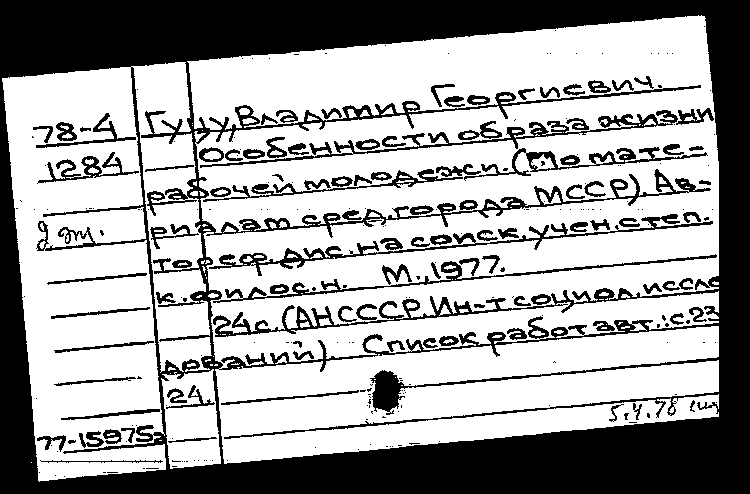 78-4 Гуцу, Владимир Георгиевич.
1284 Особенности образа жизни
рабочей молодежи. (По мате-
2 эт. риалам сред. города МССР). Ав-
тореф. дис. на соиск. учен. степ.
к. филос. н. М., 1977.
24 с. (АН СССР. Ин-т социол. иссле
дований) Список работ авт.: с. 23
24.
77-15975а
5.4.78